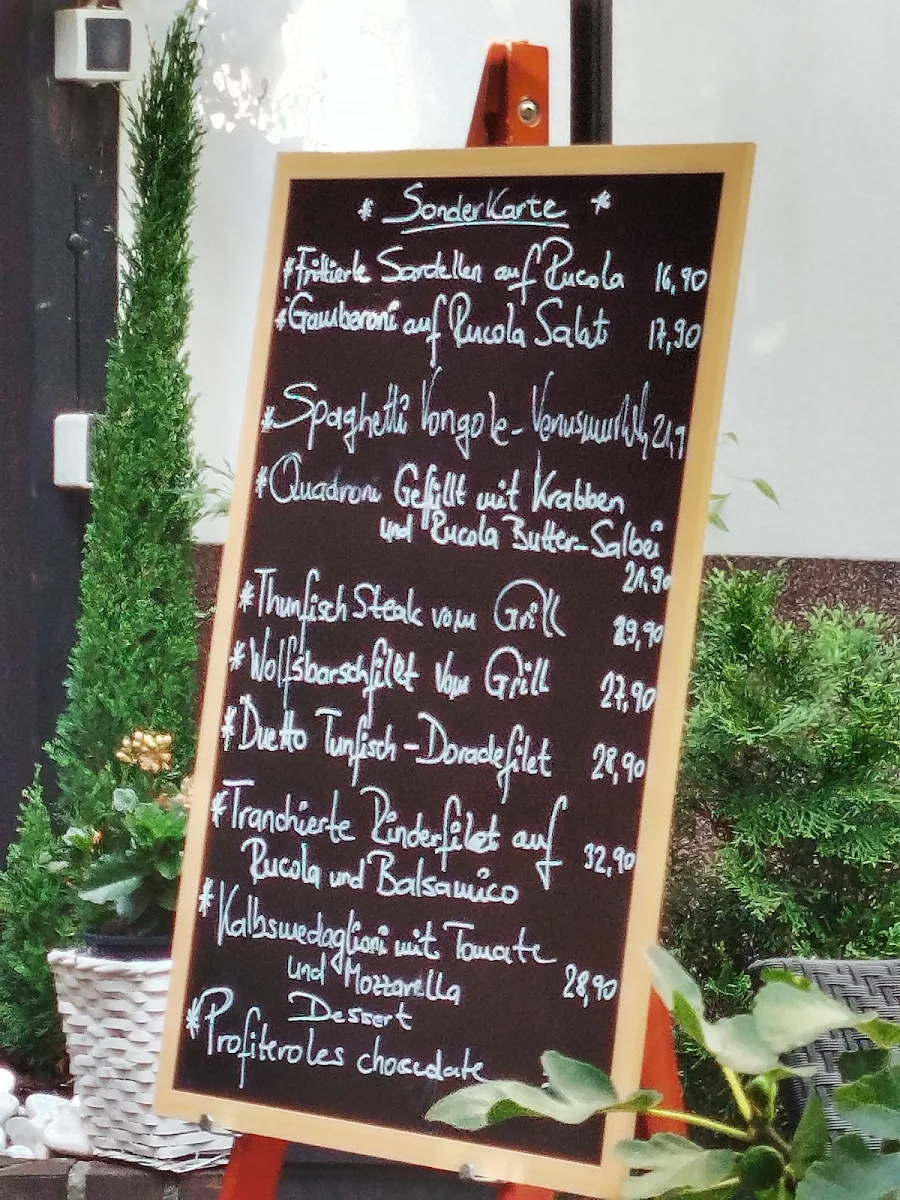 * Sonderkarte *
* Frittierte Sardellen auf Rucola 16,90
* Gamberoni auf Rucola Salat 17,90
* Spaghetti Vongole - 21,9
* Quadroni Gefüllt mit Krabben
und Rucola Butter-Salbei
21,90
* Thunfisch Steak vom Grill 29,90
* Wolfsbarschfilet vom Grill 27,90
* Duetto Tunfisch - Doradefilet 28,90
* Tranchierte Rinderfilet auf 32,90
Rucola und Balsamico
* Kalbsmedaglioni mit Tomate
und Mozzarella 28,90
Dessert
* Profiteroles